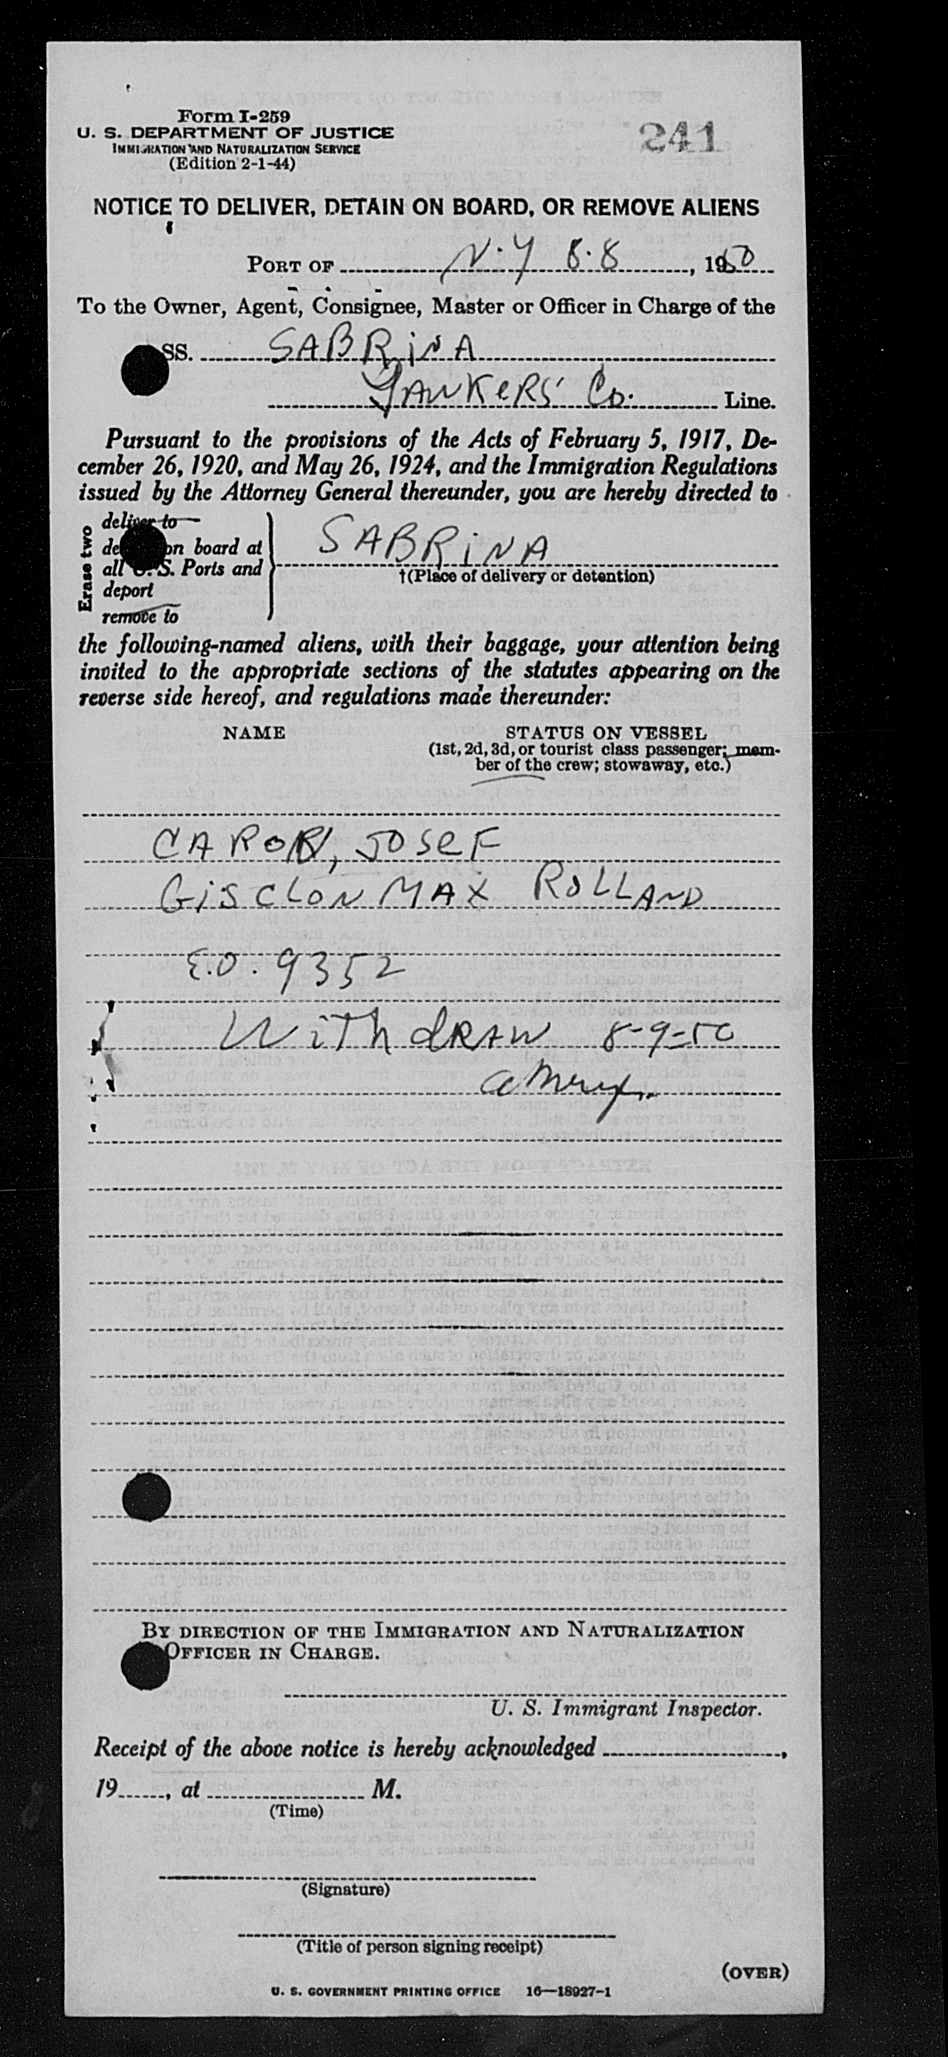 Form I-259
U. S. DEPARTMENT OF JUSTICE
IMMIGRATION AND NATURALIZATION SERVICE
(Edition 2-1-44)
241
NOTICE TO DELIVER, DETAIN ON BOARD, OR REMOVE ALIENS
PORT OF N.Y 8.8, 1950
To the Owner, Agent, Consignee, Master or Officer in Charge of the
SS. SABRINA
Co. Line.
Pursuant to the provisions of the Acts of February 5, 1917, De-
cember 26, 1920, and May 26, 1924, and the Immigration Regulations
issued by the Attorney General thereunder, you are hereby directed to
Erase two
deliver to
on board at
all U. S. Ports and
deport
remove to
SABRINA
†(Place of delivery or detention)
the following-named aliens, with their baggage, your attention being
invited to the appropriate sections of the statutes appearing on the
reverse side hereof, and regulations made thereunder:
NAME STATUS ON VESSEL
(1st, 2d, 3d, or tourist class passenger; mem-
ber of the crew; stowaway, etc.)
JOSEF
GISCLON MAX ROLLAND
E.O. 9352
WITHDRAW 8-9-50
BY DIRECTION OF THE IMMIGRATION AND NATURALIZATION
OFFICER IN CHARGE.
U. S. Immigrant Inspector.
Receipt of the above notice is hereby acknowledged ,
19 , at M.
(Time)
(Signature)
(Title of person signing receipt)
(OVER)
U. S. GOVERNMENT PRINTING OFFICE 16—18927-1